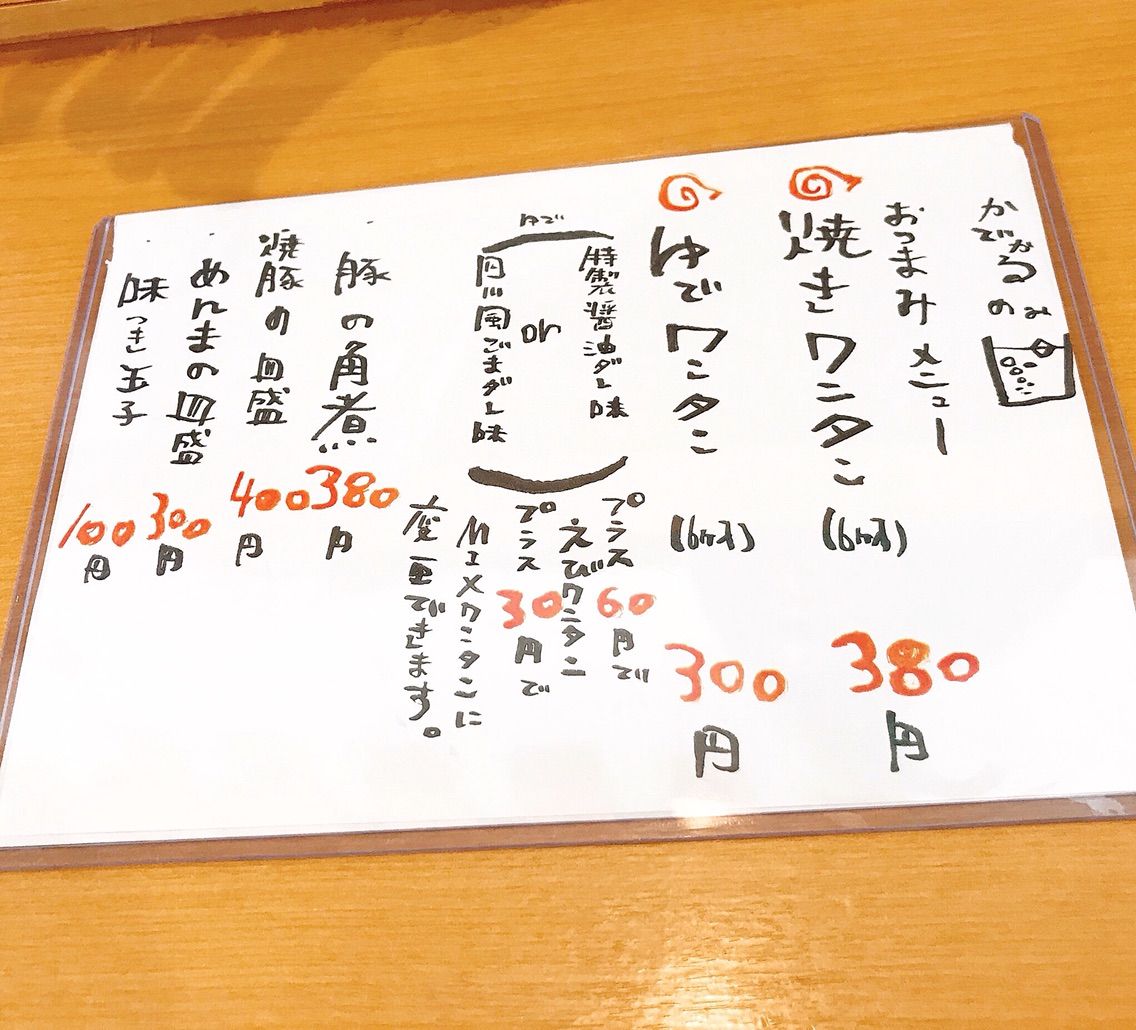 かでかるのみ
おつまみメニュー
焼きワンタン (6ヶ入) 380円
ゆでワンタン (6ヶ入) 300円
ゆで
特製醤油ダレ味
or
四川風ごまダレ味
プラス60円で
えびワンタン
プラス30円で
M1メワンタンに
変更できます。
豚の角煮 380円
焼豚の皿盛 400円
めんまの皿盛 300円
味つき玉子 100円